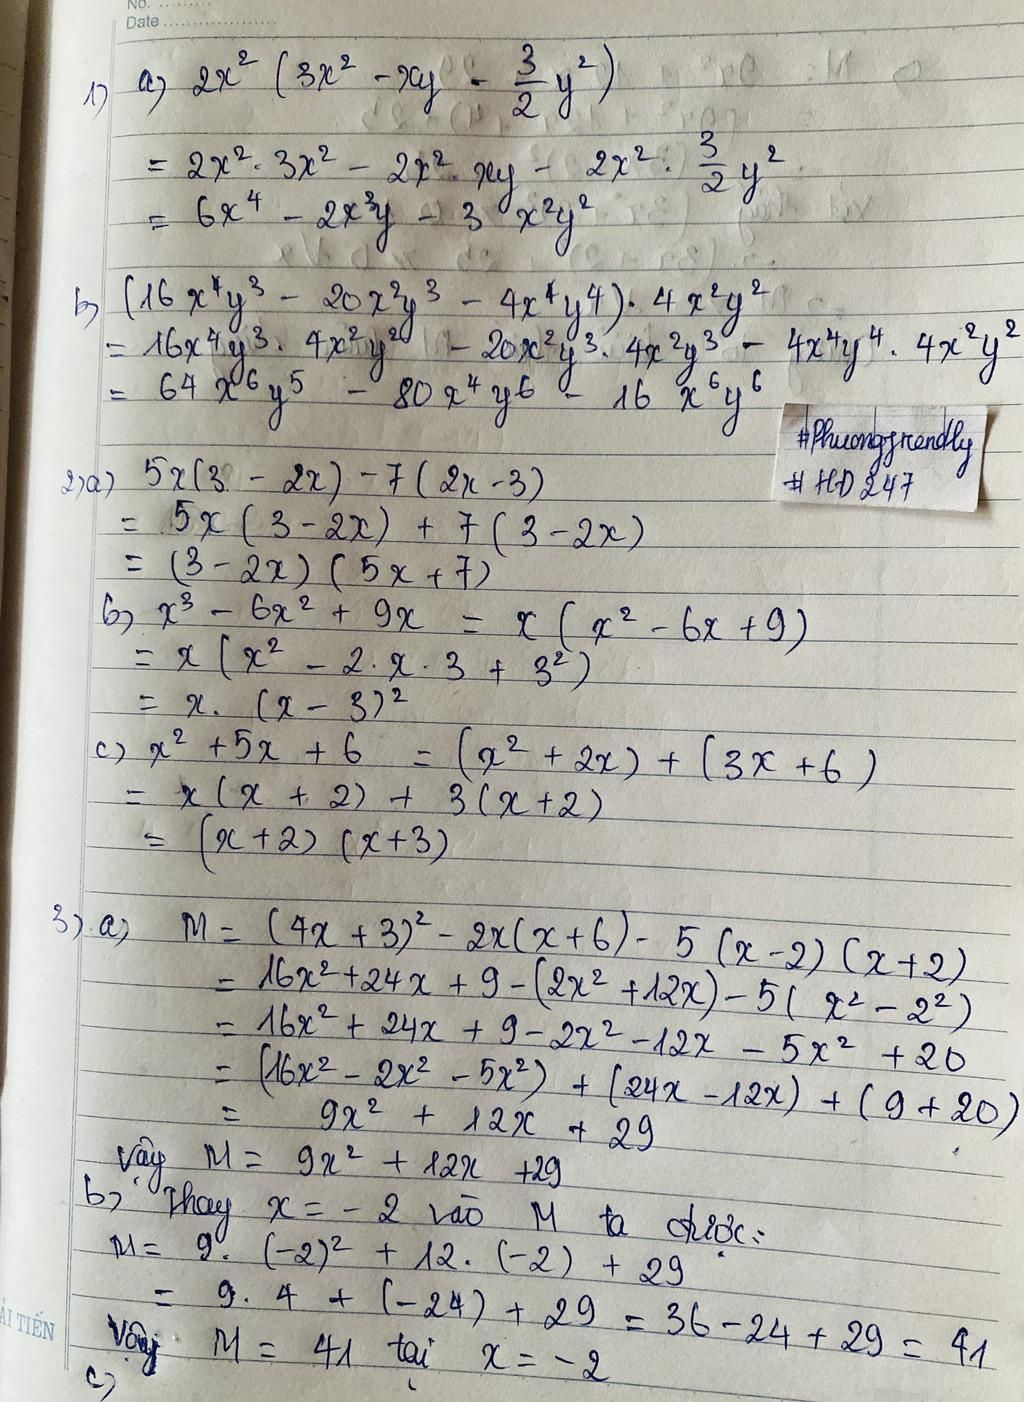 No. ........
Date ....................
1) a) 2x² (3x² - xy - 3/2 y²)
= 2x² . 3x² - 2x² . xy - 2x² . 3/2 y²
= 6x⁴ - 2x³y - 3 x²y²
b) (16x⁴y³ - 20x²y³ - 4x⁴y⁴) . 4x²y²
= 16x⁴y³ . 4x²y² - 20x²y³ . 4x²y³ - 4x⁴y⁴ . 4x²y²
= 64 x⁶y⁵ - 80x⁴y⁶ - 16 x⁶y⁶
#Phuongfrendly
# HD 247
2) a) 5x(3 - 2x) - 7(2x - 3)
= 5x (3 - 2x) + 7 (3 - 2x)
= (3 - 2x) (5x + 7)
b) x³ - 6x² + 9x = x (x² - 6x + 9)
= x (x² - 2 . x . 3 + 3²)
= x. (x - 3)²
c) x² + 5x + 6 = (x² + 2x) + (3x + 6)
= x (x + 2) + 3 (x + 2)
= (x + 2) (x + 3)
3) a) M = (4x + 3)² - 2x(x + 6) - 5 (x - 2) (x + 2)
= 16x² + 24x + 9 - (2x² + 12x) - 5 (x² - 2²)
= 16x² + 24x + 9 - 2x² - 12x - 5x² + 20
= (16x² - 2x² - 5x²) + (24x - 12x) + (9 + 20)
= 9x² + 12x + 29
Vậy M = 9x² + 12x + 29
b) Thay x = -2 vào M ta được:
M = 9. (-2)² + 12. (-2) + 29
= 9. 4 + (-24) + 29 = 36 - 24 + 29 = 41
Vậy M = 41 tại x = -2
c)
ẢI TIẾN